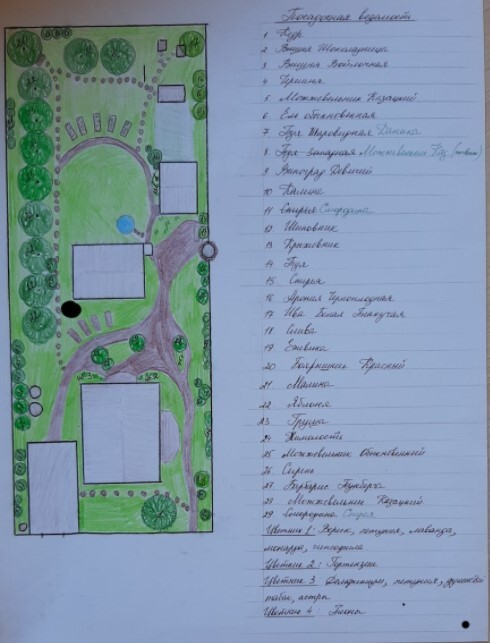 Посадочная ведомость
1 Кедр
2 Вишня Шоколадница
3 Вишня Войлочная
4 Черешня
5 Можжевельник Казацкий
6 Ель обыкновенная
7 Туя Шаровидная Даника
8 Туя Западная Можжевельник Каз.
9 Виноград Девичий
10 Калина
11 Спирея Смородина
12 Шиповник
13 Крыжовник
14 Туя
15 Спирея
16 Арония Черноплодная
17 Ива Белая Плакучая
18 Слива
19 Ежевика
20 Боярышник Красный
21 Малина
22 Яблоня
23 Груша
24 Жимолость
25 Можжевельник Обыкновенный
26 Сирень
27 Барбарис Тунберга
28 Можжевельник Казацкий
29 Смородина Спирея
Цветник 1: Вереск, петуния, лаванда,
монарда, гипсофила
Цветник 2: Гортензии
Цветник 3 петуния, душистый
табак, астры
Цветник 4: Пионы